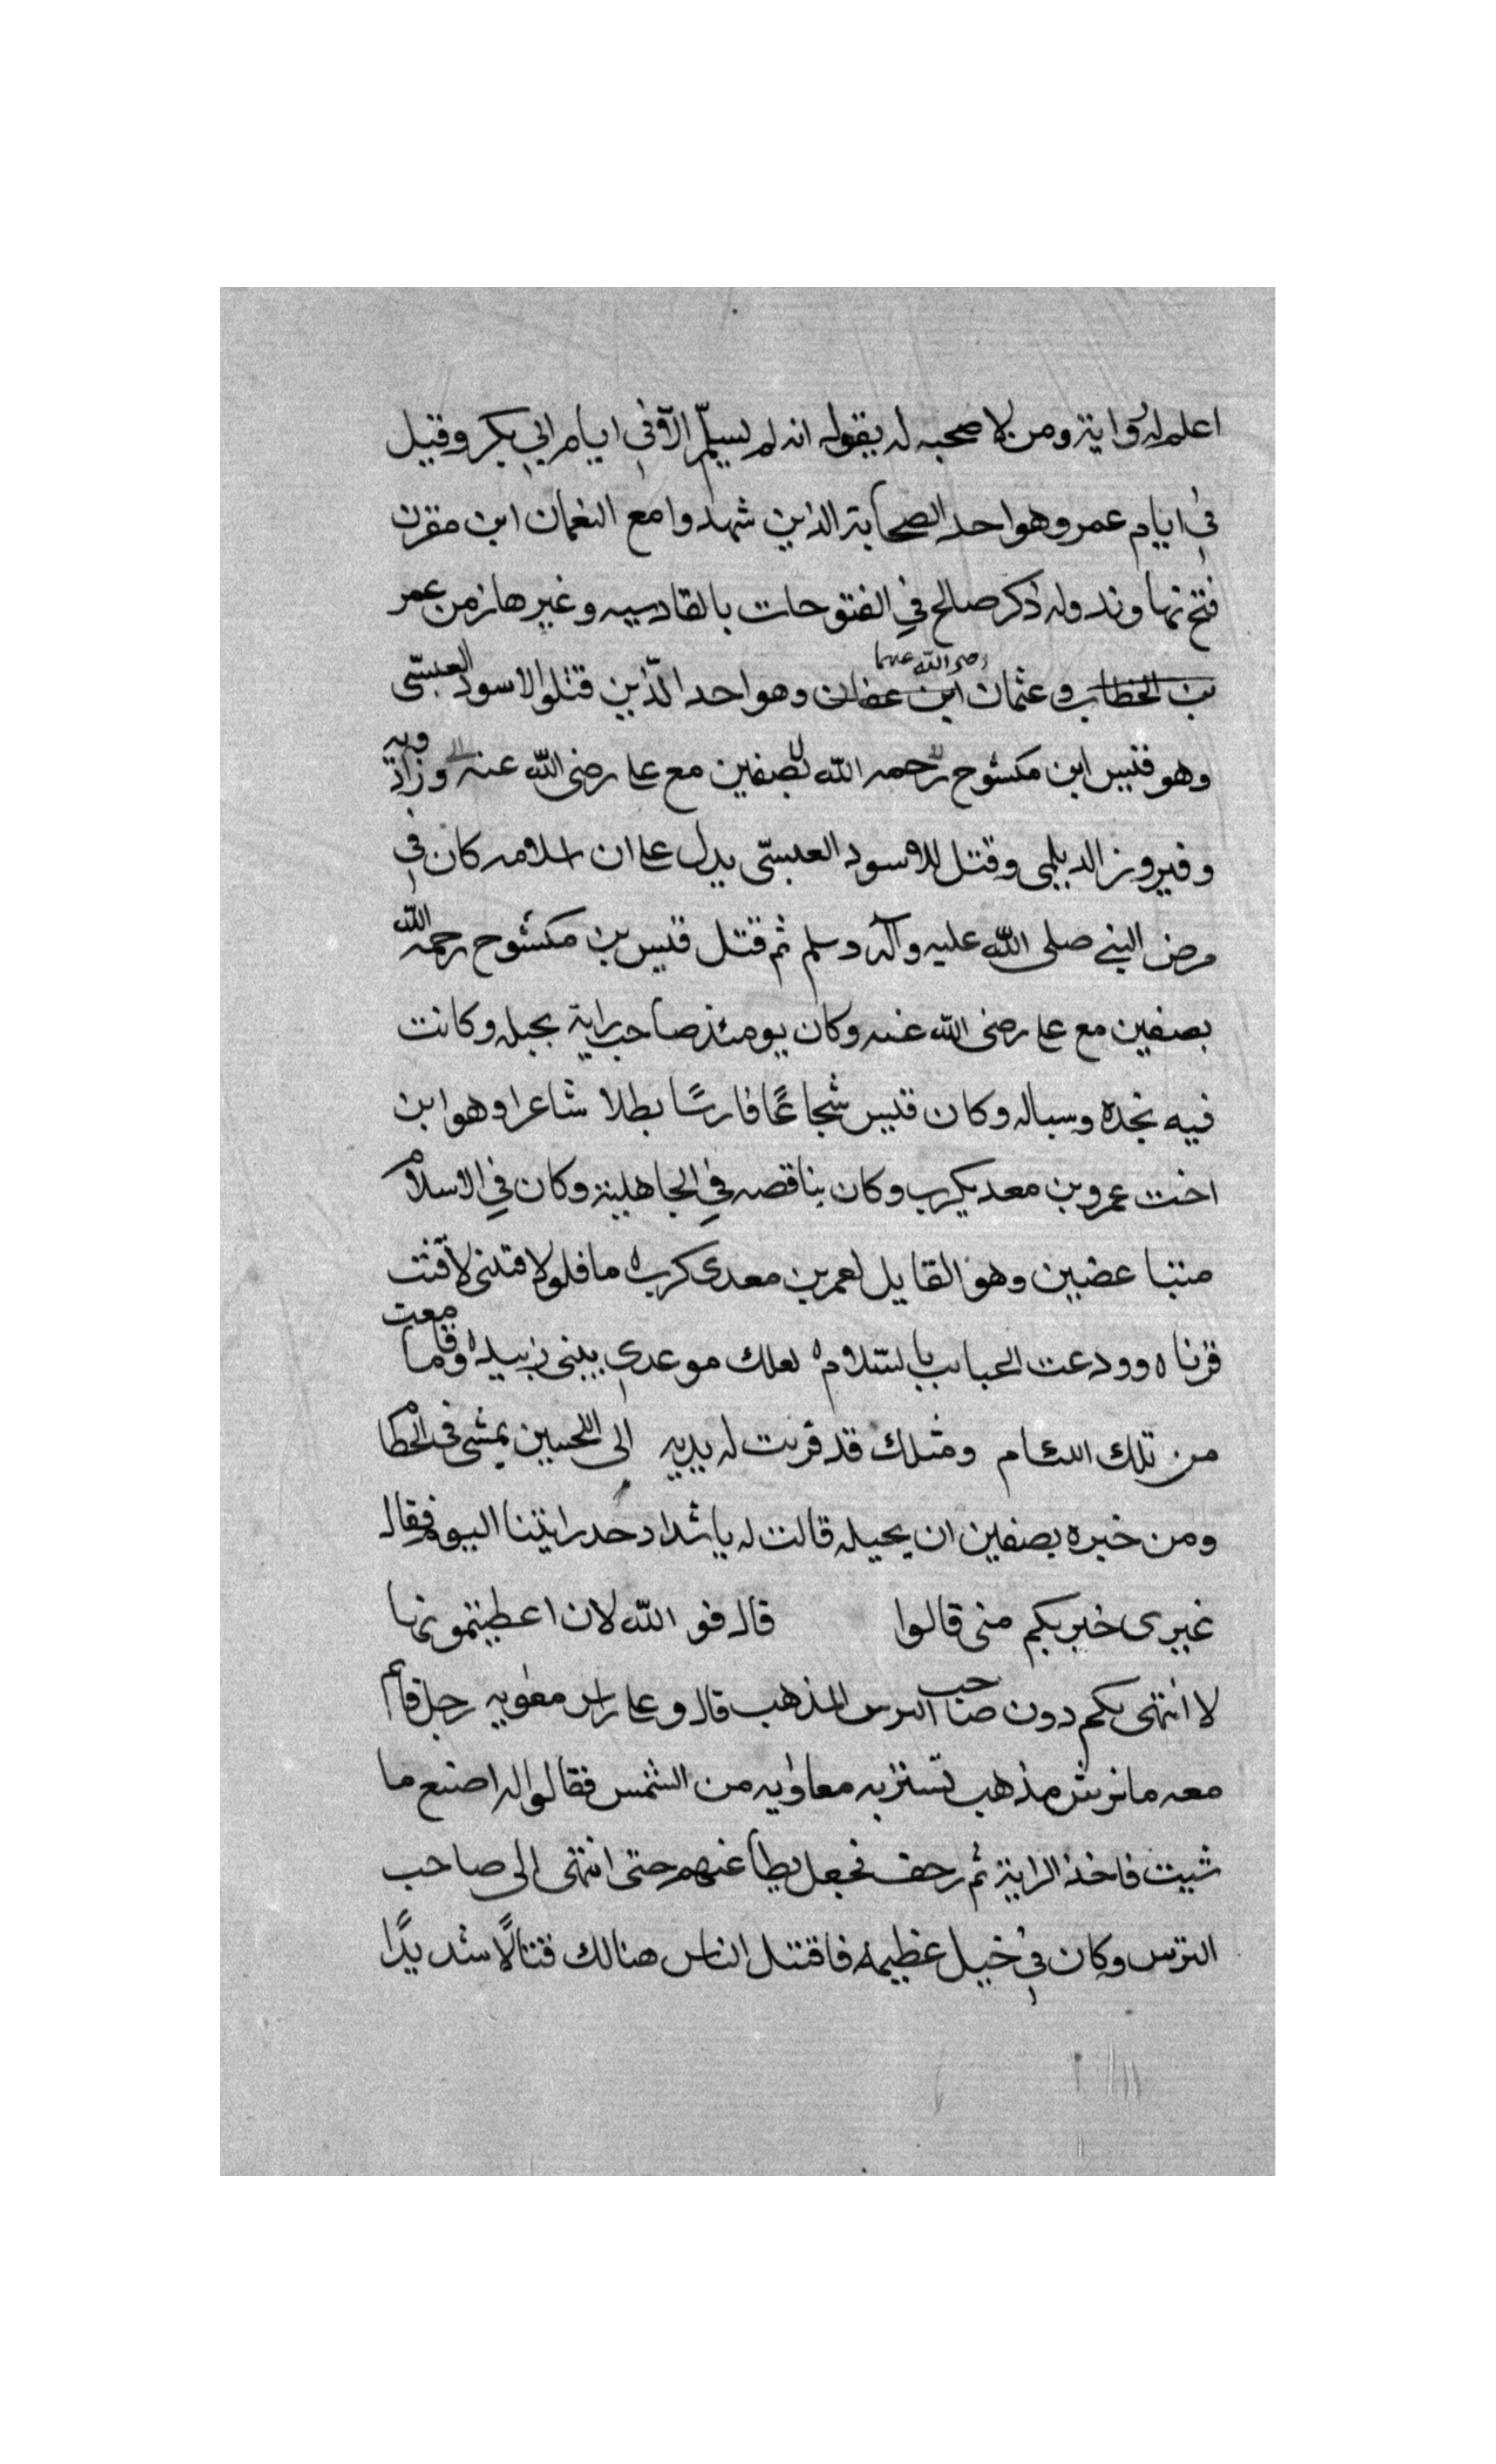 اعلم له رواية ومن لا صحبه له يقول انه لم يسلم الا في ايام ابي بكر وقيل
في ايام عمر وهو احد الصحابة الذين شهدوا مع النعمان ابن مقرن
فتح نهاوند وله ذكر صالح في الفتوحات بالقادسيه وغيرها زمن عمر
بن الخطاب و عثمان ابن عفان رضي الله عنهما وهو احد الذين قتلوا الاسود العبسي
وهو قيس ابن مكشوح رحمه الله بصفين مع علي رضي الله عنه وزاذويه
وفيروز الديلمي وقتل للاسود العبسي يدل على ان اسلامه كان في
مرض النبي صلى الله عليه وآله وسلم ثم قتل قيس بن مكشوح رحمه الله
بصفين مع علي رضي الله عنه وكان يومئذ صاحب راية بجيله وكانت
فيه نجده وبساله وكان قيس شجاعًا فارسًا بطلا شاعرا وهو ابن
اخت عمرو بن معديكرب وكان يناقضه في الجاهلية وكان في الاسلام
متباغضين وهو القايل لعمر بن معدي كرب ه فلولا قتني لاقيت
قرناه وودعت الحبايب بالسلام ه لعلك موعدي ببني زبيد ه وما قامعت
من تلك اللئام ومثلك قد قرنت له يديه الى اللحيين يمشي في الخطام
ومن خبره بصفين ان بجيله قالت له يا شداد خد رايتنا اليوم فقال
غيري خير لكم مني قالوا قال فو الله لان اعطيتمونيها
لا انتهي بكم دون صاحب الترس المذهب قال وعلى راس معويه رجل قائم
معه ترس مذهب تستتر به معاويه من الشمس فقالوا له اصنع ما
شيت فاخذ الراية ثم زحف فجعل يطاعنهم حتى انتهى الى صاحب
الترس وكان في خيل عظيمه فاقتتل الناس هنالك قتالًا شديدًا